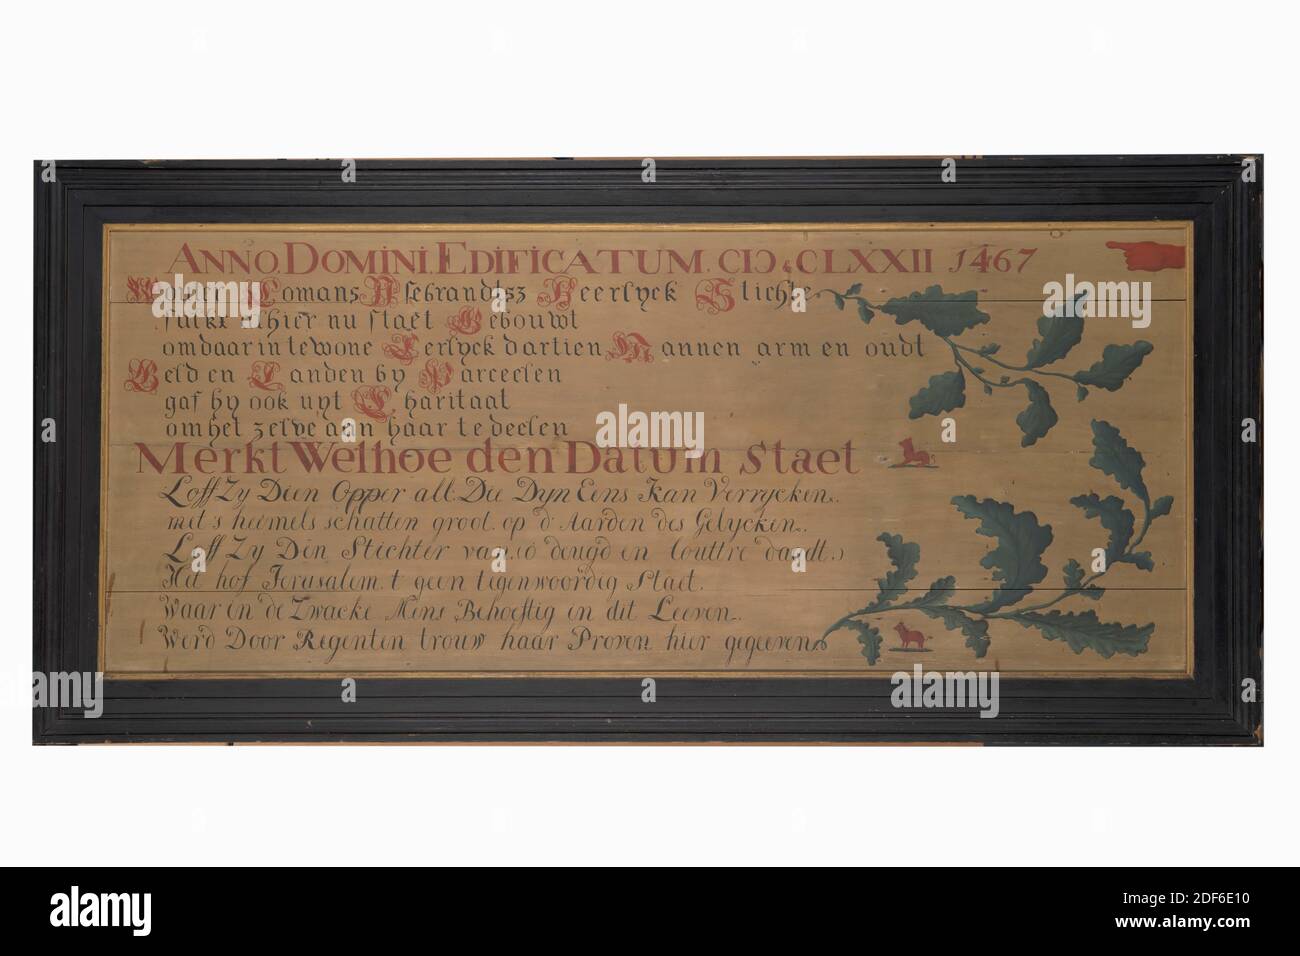 ANNO DOMINI EDIFICATUM. CIƆ & CLXXII 1467
Wouter Comans Ysebrandtsz Heerlyck Stichte
sulkx alhier nu staet Gebouwt
om daar in te wone Eerlyck dartien Mannen arm en oudt
Geld en Landen by Parceelen
gaf hy ook uyt Charitaat
om het zelve aan haar te deelen
Merkt Welhoe den Datum Staet
Loff Zy Dien Opper all. Die Dyn Eens Kan Verrycken.
met s heemels schatten groot op d' Aarden des Gelycken.
Loff Zy Den Stichter van. deugd en louttre daadt.
Het hof Jerusalem. t geen tegenwoordig Staet.
Waar in de Zwacke Mens Behoeftig in dit Leeven.
Werd Door Regenten trouw haar Proven hier gegeeven
alamy
Image ID: 2DF6E10
www.alamy.com